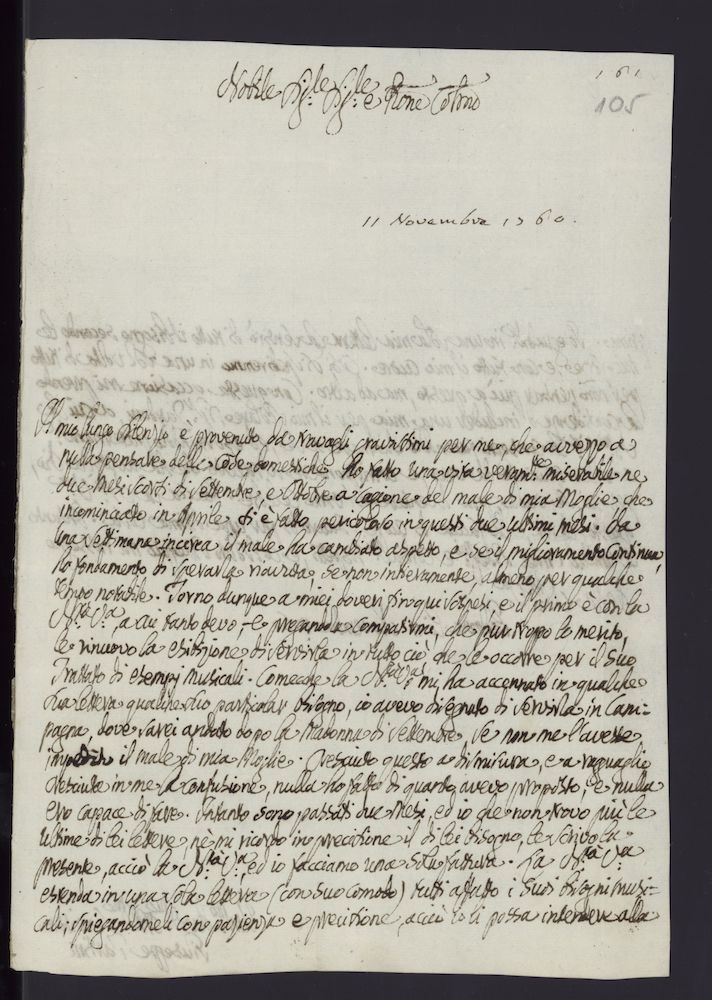 161
105
Nobile Sig.le Sig.le e Pãrone Col̃mo
11 Novembre 1760.
Il mio lungo silenzio è provenuto da travagli gravissimi per me, che avvezzo a
nulla pensare delle cose domestiche ho fatto una vita veram.te miserabile ne
due Mesi scorsi di Settembre, e Ottobre a cagione del male di mia Moglie che
incominciato in Aprile si è fatto pericoloso in questi due ultimi mesi. Da
una Settimana incirca il male ha cambiato aspetto, e se il miglioramento continua,
ho fondamento di sperarla riavuta se non intieramente, almeno per qualche
tempo notabile. Torno dunque a miei doveri fin qui sospesi, e il primo è con la
N.ra V.ra, a cui tanto devo, e pregandola compatirmi, che pur troppo lo merito,
le rinuovo la esibizione di servirla in tutto ciò che le occorre per il Suo
Trattato di esempj musicali. Comecche la N.ra V.ra mi ha accennato in qualche
sua lettera qualche suo particolar bisogno, io avevo disegnato di servirla in Cam=
pagna, dove sarei andato dopo la Madonna di Settembre, se non me l'avesse
impedito il male di mia Moglie. Cresciuto questo a dismisura, e a ragguaglio
cresciuta in me la confusione, nulla ho fatto di quanto avevo proposto, e nulla
ero capace di fare. Intanto sono passati due Mesi, ed io che non trovo più le
ultime di lei lettere, nè mi ricordo in precisione il di lei bisogno, le scrivo la
presente, acciò la N.ra V.ra ed io facciamo una sola fattura. La N.ra V.ra
estenda in una sola lettera (con suo comodo) tutti affatto i Suoi bisogni musi=
cali; spiegandomeli con pazienza e precisione, acciò io li possa intendere alla